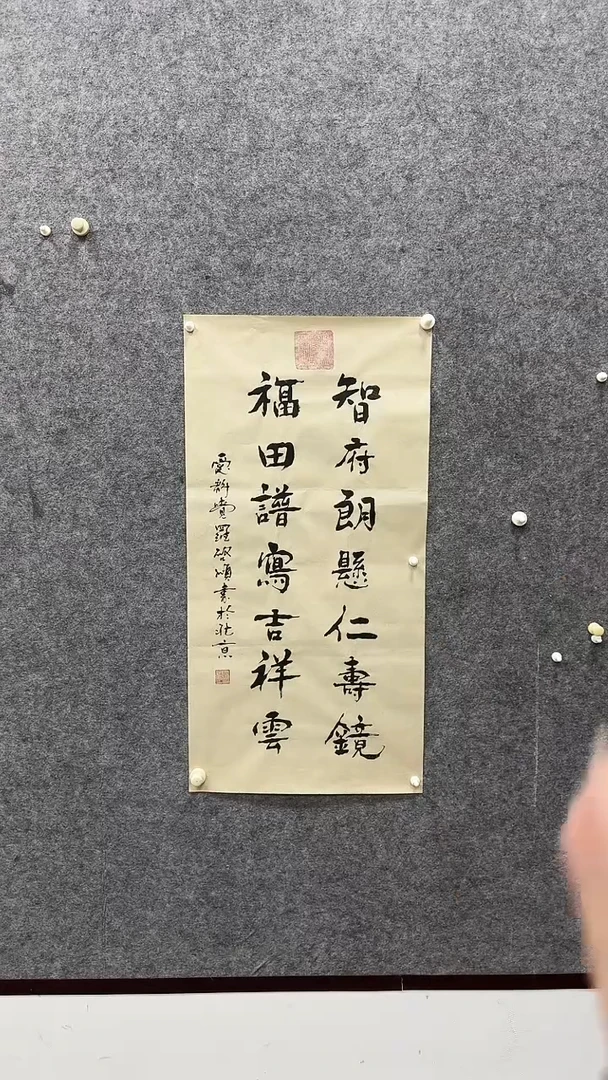 智府朗懸仁壽鏡
福田譜寫吉祥雲
愛新覺羅啓順書於北京